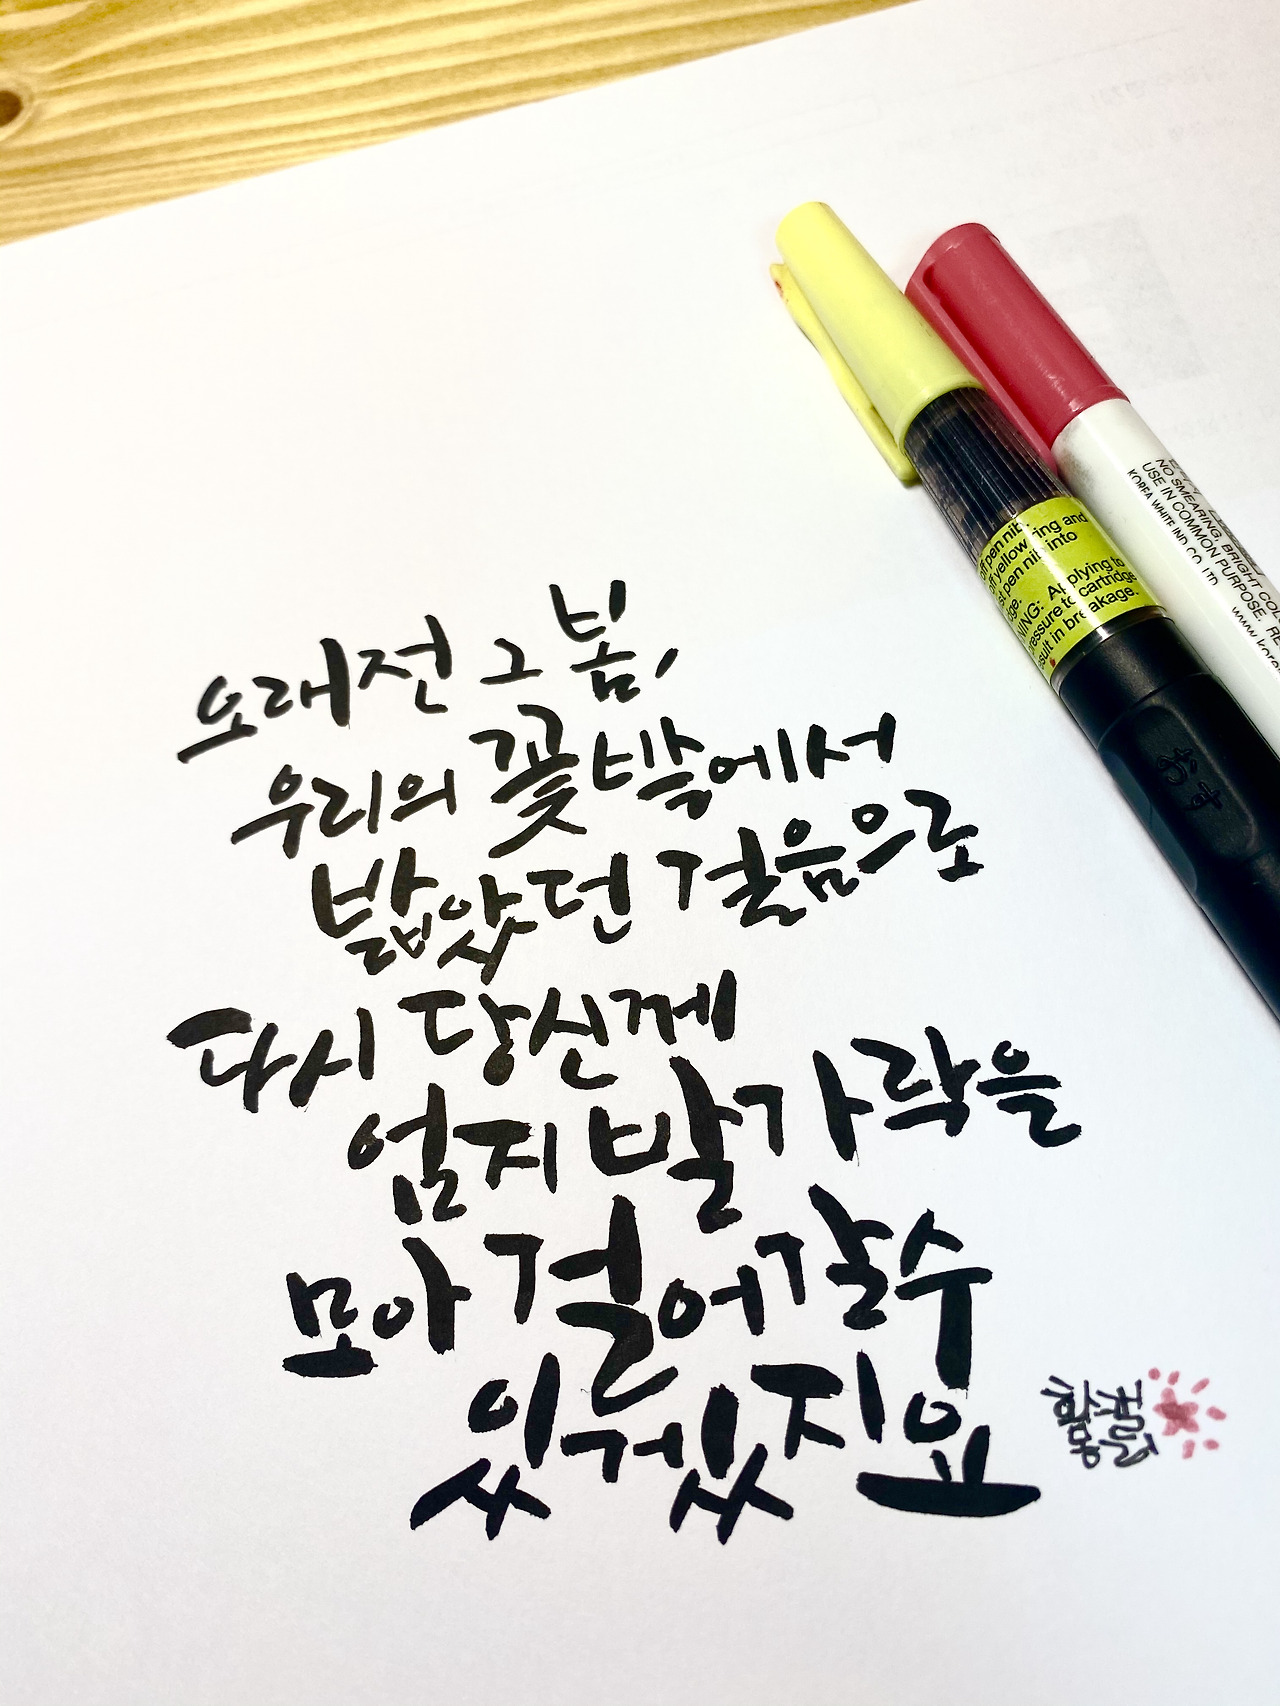 오래전 그 봄,
우리의 꽃밭에서
밟았던 걸음으로
다시 당신께
엄지발가락을
모아 걸어갈수
있겠지요
off pen nib.
off yellow ring and
pen nib into
NING: Applying to
pressure to cartridge
result in breakage.
NO SMEARING. BRIGHT COL
USE IN COMMON PURPOSE. RE
KOREA WHITE IND CO. LTD
www.kore